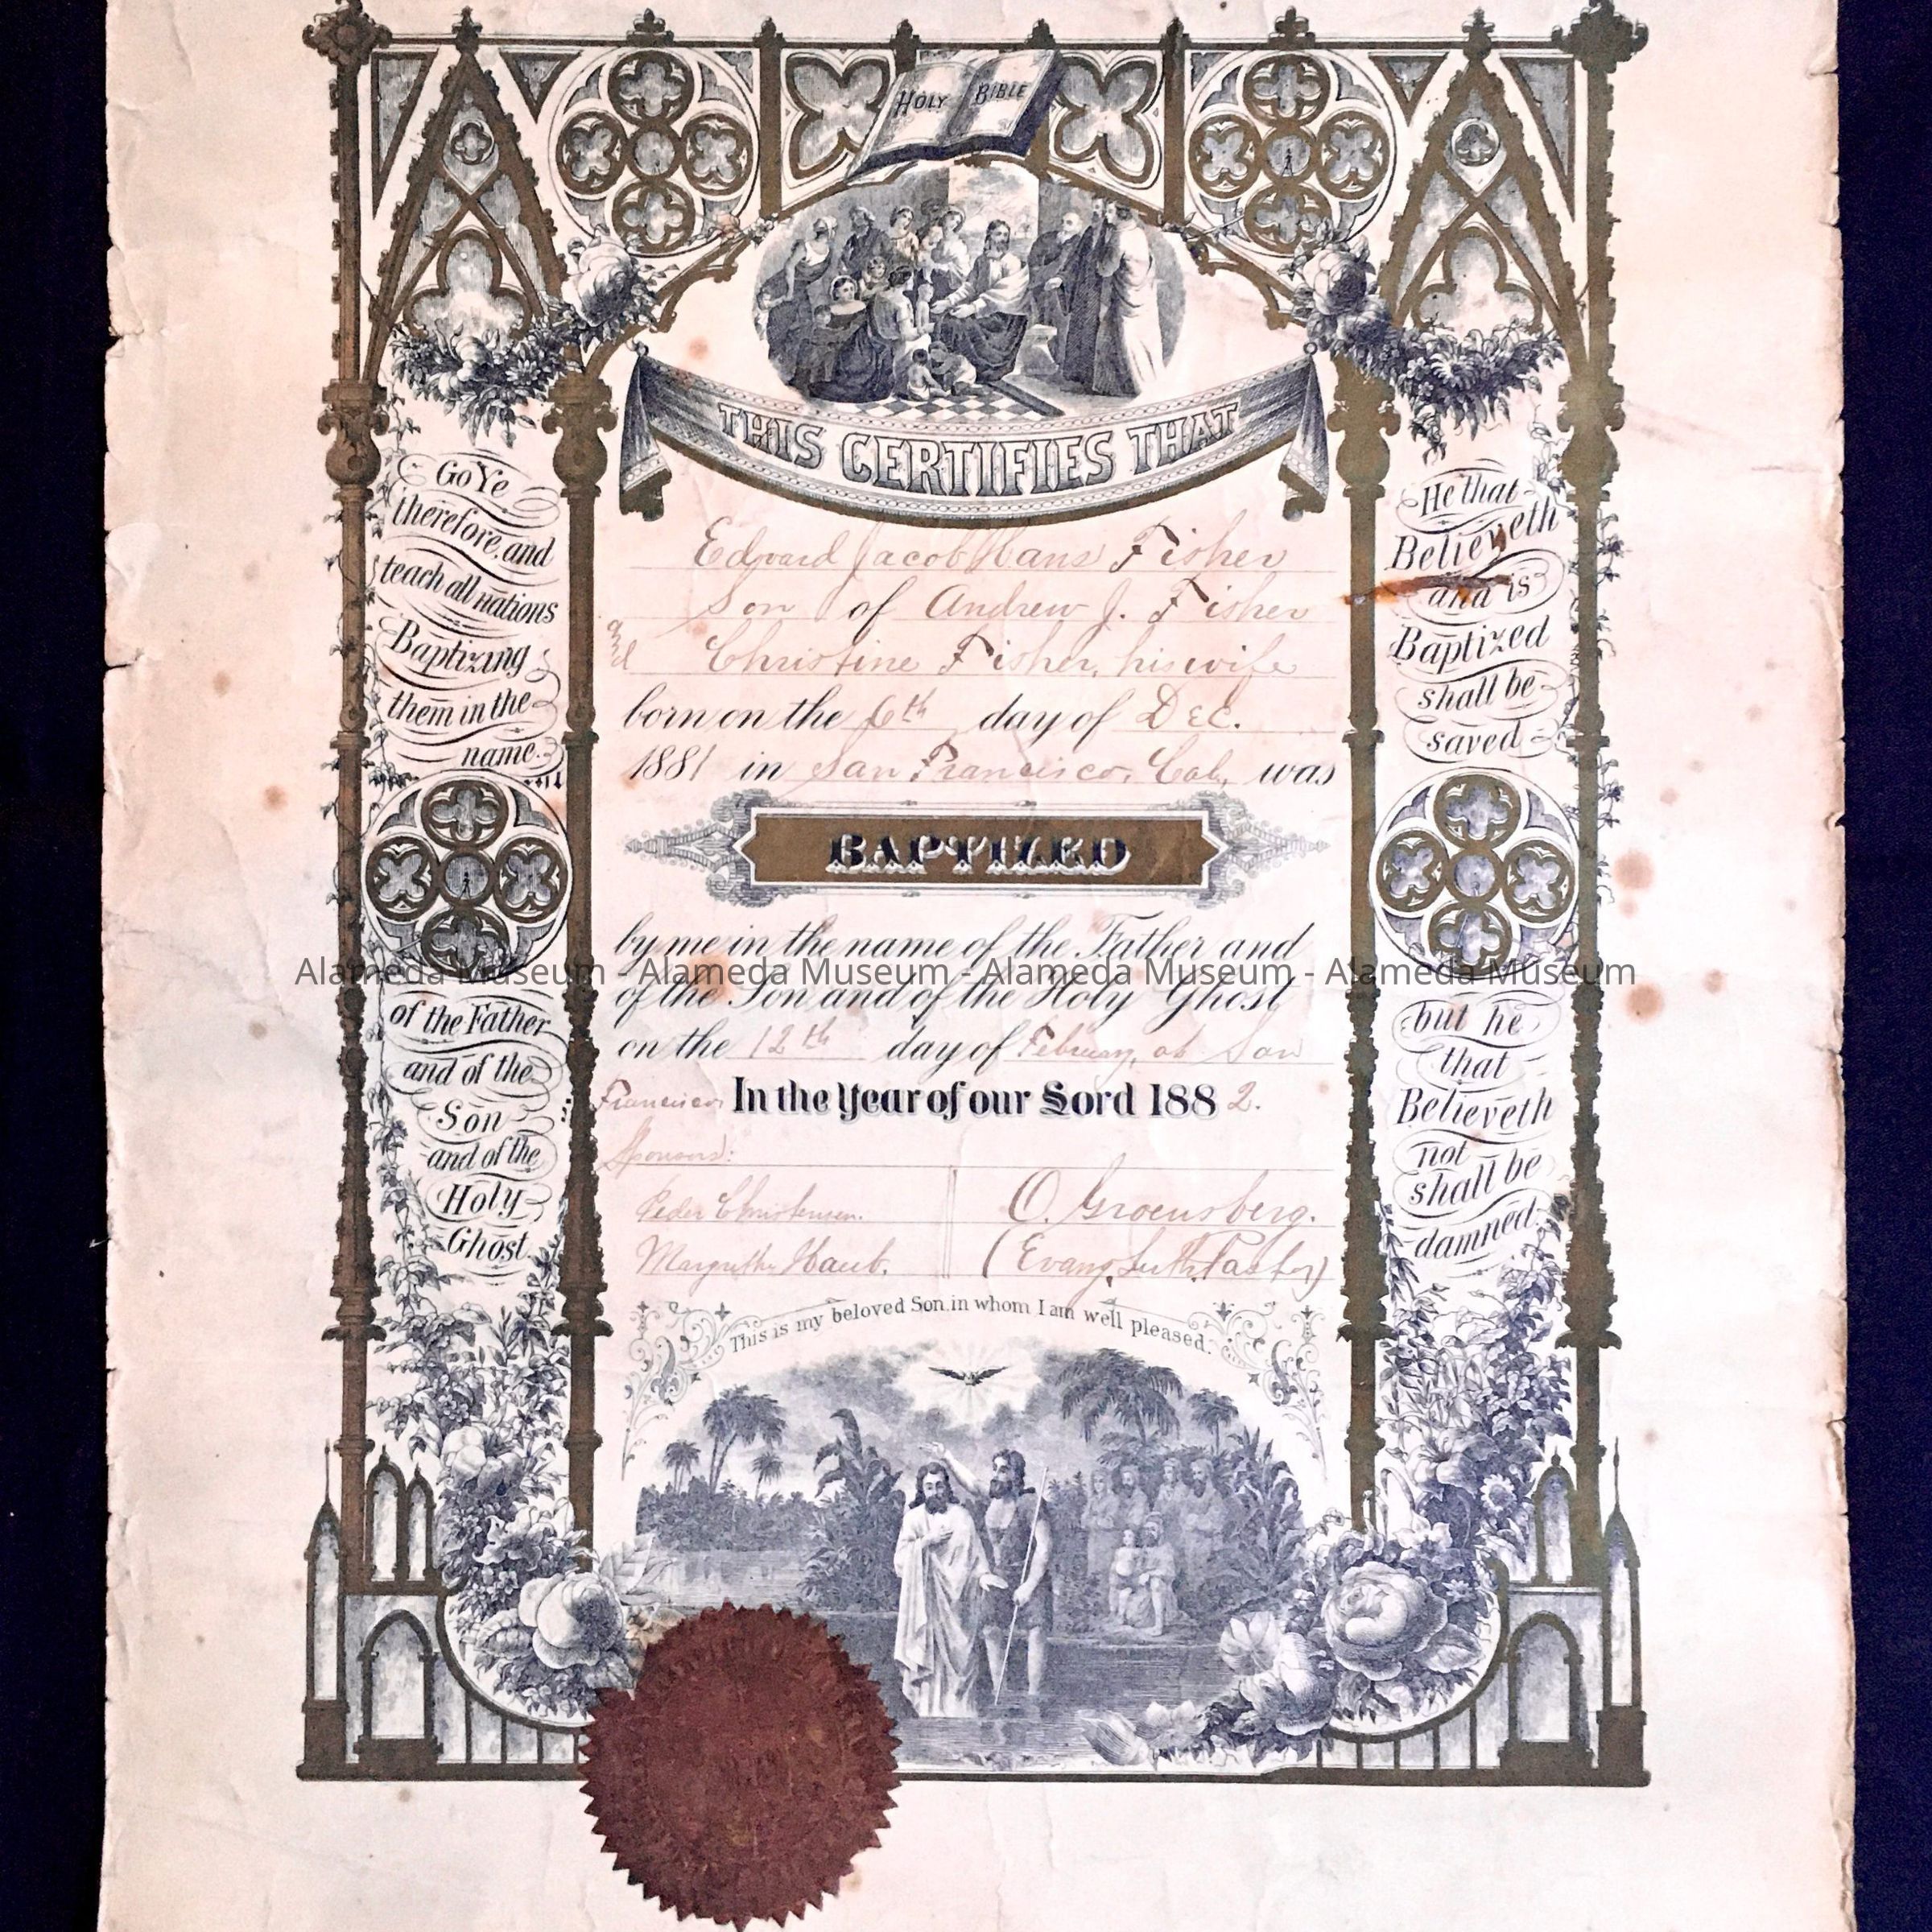 HOLY BIBLE
THIS CERTIFIES THAT
Edward Jacob Hans Fisher
Son of Andrew J. Fisher
and Christine Fisher, his wife
born on the 6th day of Dec.
1881 in San Francisco, Cal, was
BAPTIZED
by me in the name of the Father and
of the Son and of the Holy Ghost
on the 12th day of February, at San
Francisco, In the Year of our Lord 1882.
Sponsors:
Peder Christensen.
Margrethe Haub.
O. Groensberg.
(Evang. Luth. Pastor)
This is my beloved Son in whom I am well pleased.
Go Ye
therefore, and
teach all nations
Baptizing
them in the
name
of the Father
and of the
Son
and of the
Holy
Ghost
He that
Believeth
and is
Baptized
shall be
saved
but he
that
Believeth
not
shall be
damned.
Alameda Museum - Alameda Museum - Alameda Museum - Alameda Museum